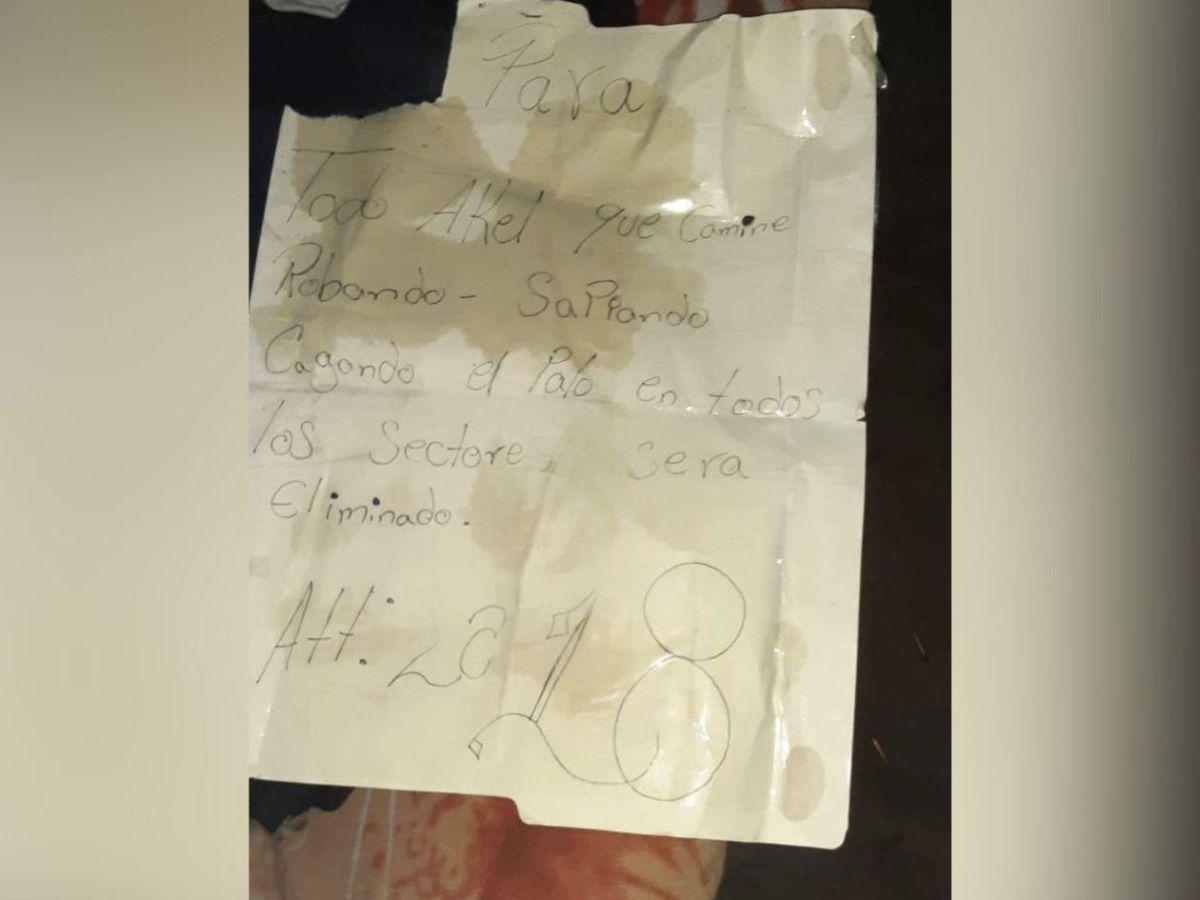 Para
Todo AKel que Camine
Robando - SaPiando
Cagando el Palo en todos
los Sectores sera
Eliminado.
Att. La 18